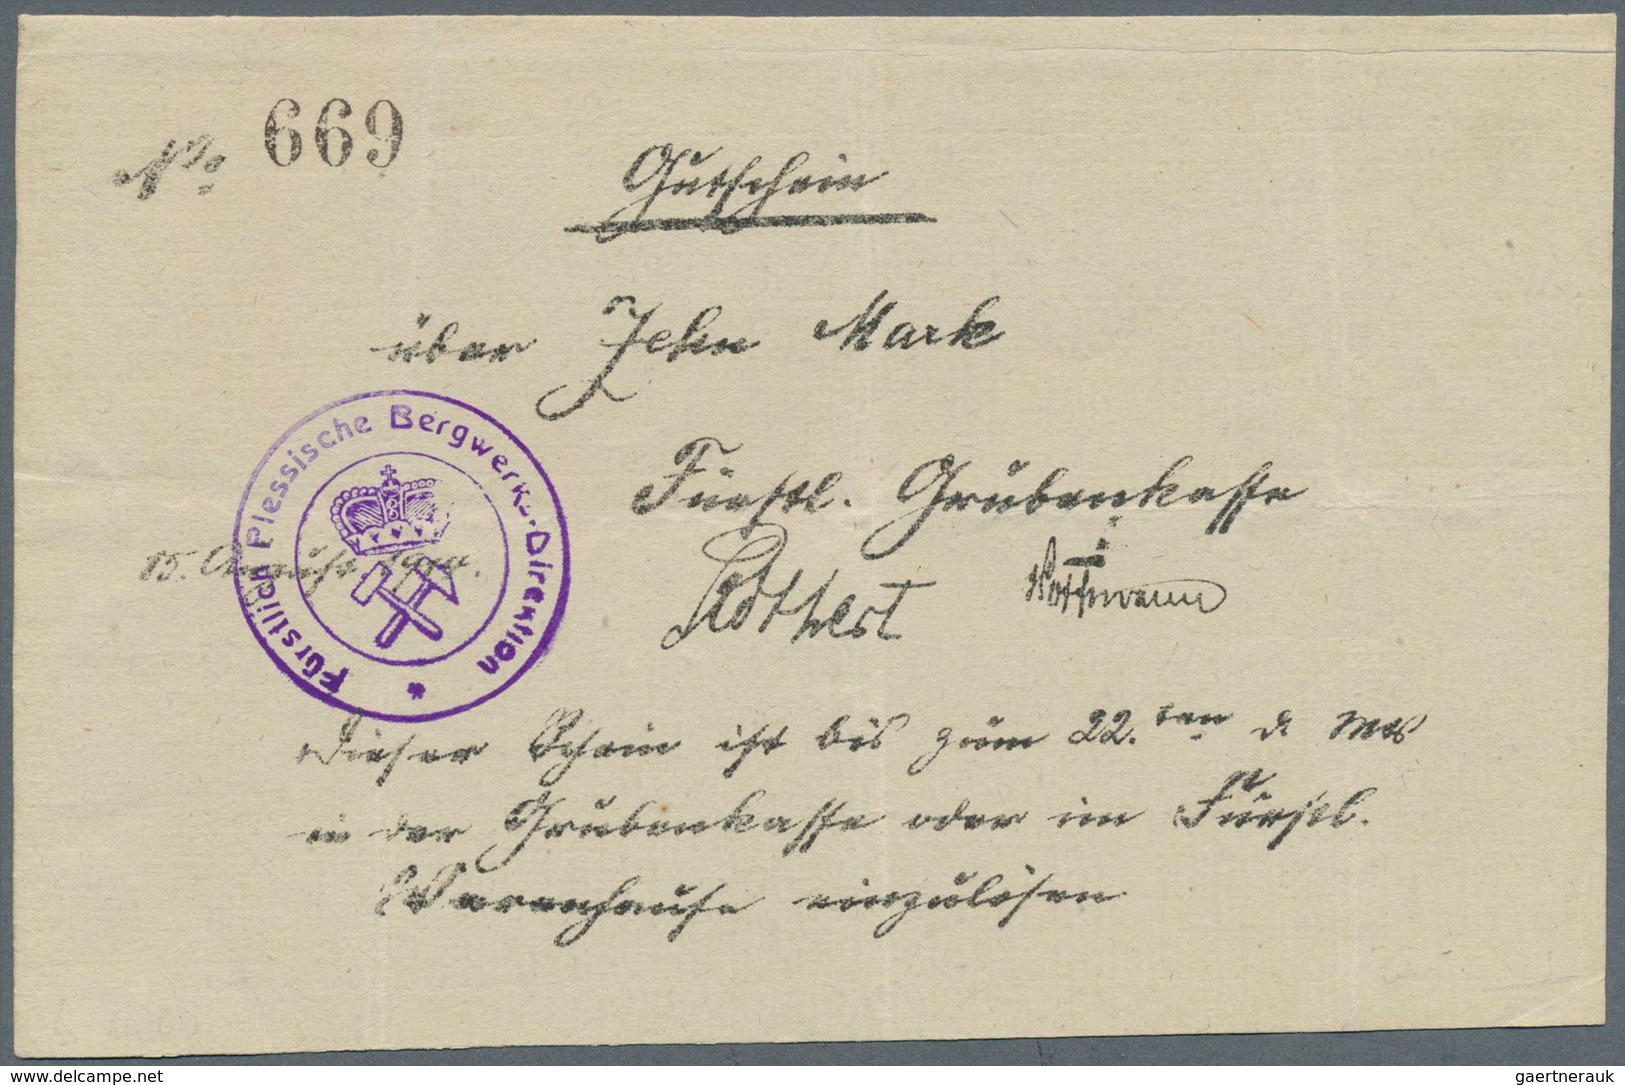 No 669
Gutschein
über Zehn Mark
Fürstlich Plessische Bergwerks-Direktion
Fürstl. Grubenkasse
15. August 1914.
Dieser Schein ist bis zum 22.ten d Mts
in der Grubenkasse oder im Fürstl.
Warenhause einzulösen
www.delcampe.net
gaertnerauk